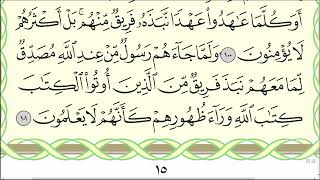 أَوَكُلَّمَا عَٰهَدُوا۟ عَهْدًا نَّبَذَهُۥ فَرِيقٌ مِّنْهُم ۚ بَلْ أَكْثَرُهُمْ
لَا يُؤْمِنُونَ ١٠٠ وَلَمَّا جَآءَهُمْ رَسُولٌ مِّنْ عِندِ ٱللَّهِ مُصَدِّقٌ
لِّمَا مَعَهُمْ نَبَذَ فَرِيقٌ مِّنَ ٱلَّذِينَ أُوتُوا۟ ٱلْكِتَٰبَ
كِتَٰبَ ٱللَّهِ وَرَآءَ ظُهُورِهِمْ كَأَنَّهُمْ لَا يَعْلَمُونَ ١٠١
١٥